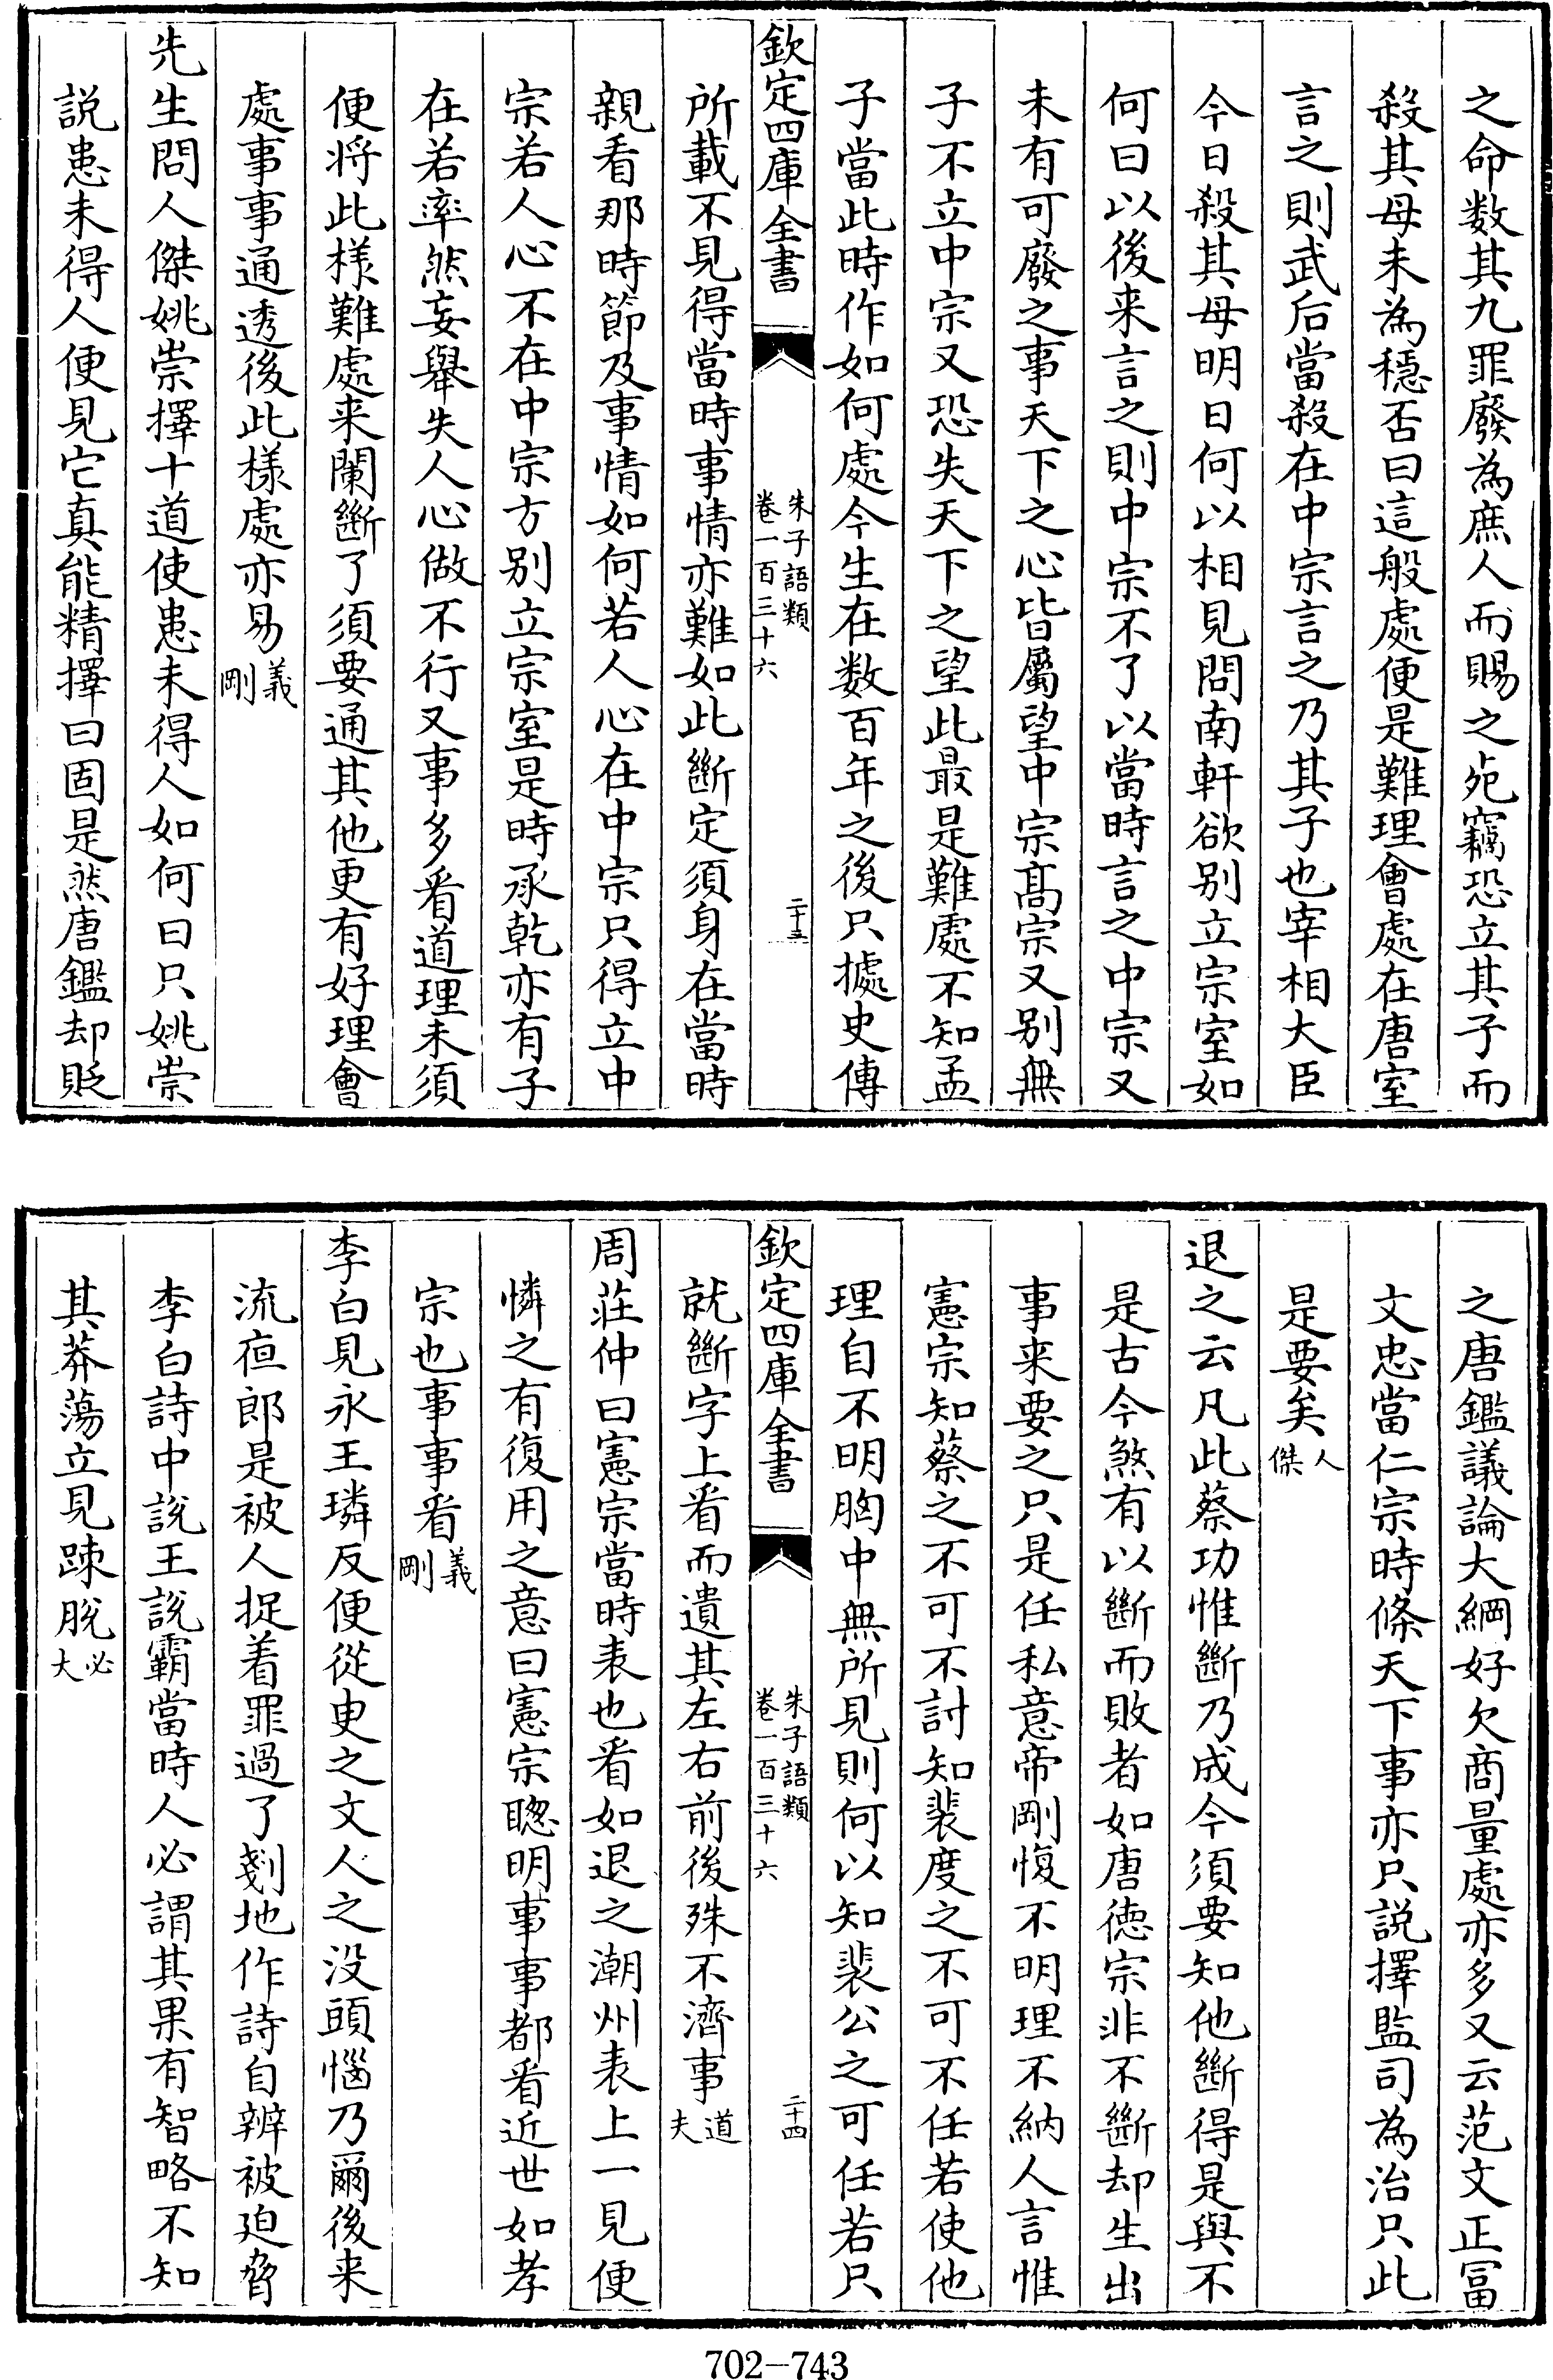 之命数其九罪廢為庶人而賜之死竊恐立其子而
殺其母未為穩否曰這般處便是難理會處在唐室
言之則武后當殺在中宗言之乃其子也宰相大臣
今日殺其母明日何以相見問南軒欲别立宗室如
何曰以後来言之則中宗不了以當時言之中宗又
未有可廢之事天下之心皆屬望中宗髙宗又别無
子不立中宗又恐失天下之望此最是難處不知孟
子當此時作如何處今生在数百年之後只據史傳
欽定四庫全書
朱子語類
卷一百三十六
二十三
所載不見得當時事情亦難如此斷定須身在當時
親看那時節及事情如何若人心在中宗只得立中
宗若人心不在中宗方别立宗室是時承乾亦有子
在若率然妄舉失人心做不行又事多看道理未須
便将此樣難處来闌斷了須要通其他更有好理會
處事事通透後此樣處亦易義剛
先生問人傑姚崇擇十道使患未得人如何曰只姚崇
説患未得人便見它真能精擇曰固是然唐鑑却貶
之唐鑑議論大綱好欠商量處亦多又云范文正富
文忠當仁宗時條天下事亦只説擇監司為治只此
是要矣人傑
退之云凡此蔡功惟斷乃成今須要知他斷得是與不
是古今煞有以斷而敗者如唐徳宗非不斷却生出
事来要之只是任私意帝剛愎不明理不納人言惟
憲宗知蔡之不可不討知裴度之不可不任若使他
理自不明胸中無所見則何以知裴公之可任若只
欽定四庫全書
朱子語類
卷一百三十六
二十四
就斷字上看而遺其左右前後殊不濟事道夫
周莊仲曰憲宗當時表也看如退之潮州表上一見便
憐之有復用之意曰憲宗聰明事事都看近世如孝
宗也事事看義剛
李白見永王璘反便從臾之文人之没頭惱乃爾後来
流夜郎是被人捉着罪過了剗地作詩自辨被廹脅
李白詩中説王説霸當時人必謂其果有智略不知
其莽蕩立見踈脱必大
702-743